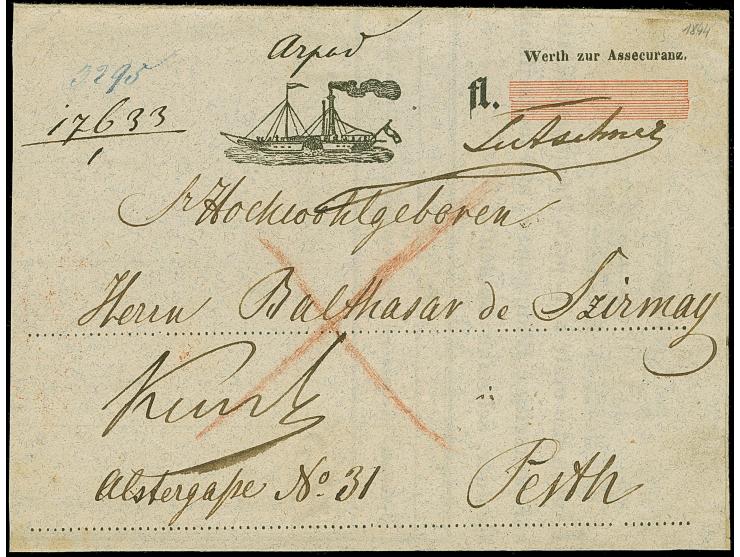 1844
Arpad
Werth zur Assecuranz.
3295
fl.
17633
Sr Hochwohlgeboren
Herrn Balthasar de Szirmay
in
Alstergaße No. 31 Pesth